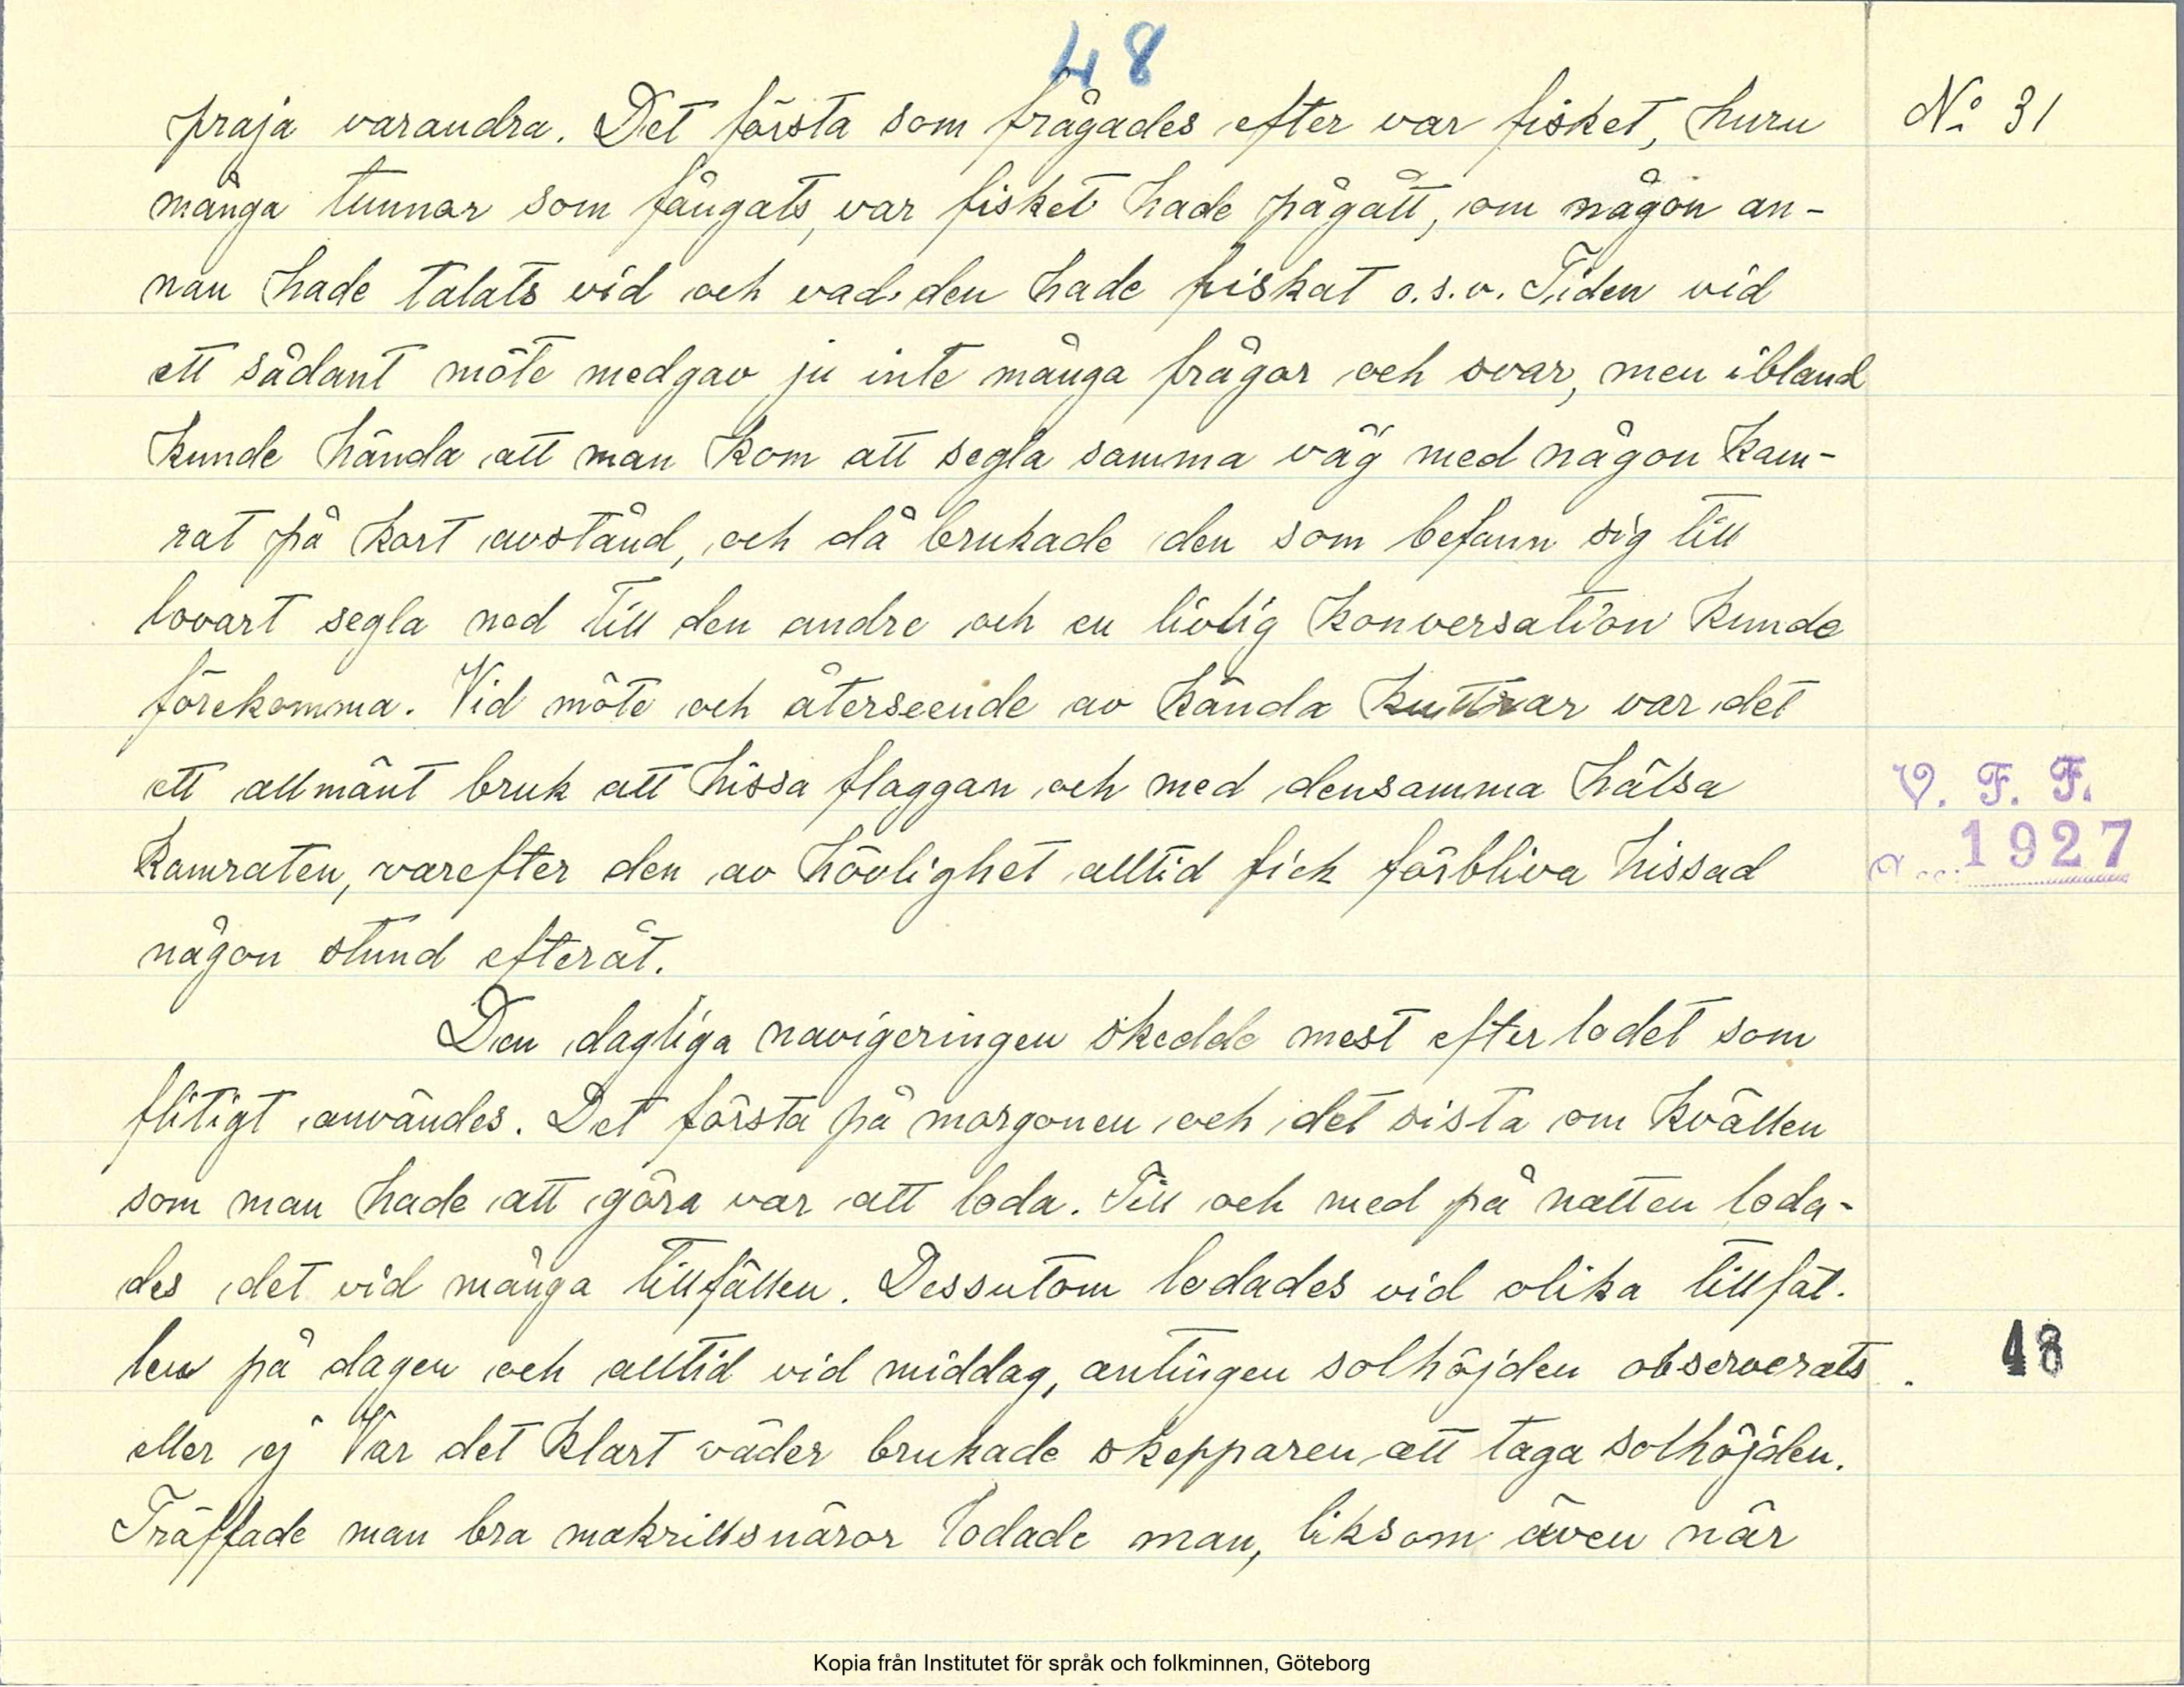 48
praja varandra. Det första som frågades efter var fisket, huru
No 31
många tunnor som fångats, var fisket hade pågått, om någon an-
nan hade talats vid och vad den hade fiskat o.s.v. Tiden vid
ett sådant möte medgav ju inte många frågor och svar, men ibland
kunde hända att man kom att segla samma väg med någon kam-
rat på kort avstånd, och då brukade den som befann sig till
lovart segla ned till den andre och en livlig konversation kunde
förekomma. Vid möte och återseende av kända kuttrar var det
ett allmänt bruk att hissa flaggan och med densamma hälsa
V. F. F.
kamraten, varefter den av hövlighet alltid fick förbliva hissad
1927
någon stund efteråt.
Den dagliga navigeringen skedde mest efter lodet som
flitigt användes. Det första på morgonen och det sista om kvällen
som man hade att göra var att loda. Till och med på natten loda-
des det vid många tillfällen. Dessutom lodades vid olika tillfäl-
len på dagen och alltid vid middag, antingen solhöjden observerats
48
eller ej. Var det klart väder brukade skepparen att taga solhöjden.
Träffade man bra makrillsnäror lodade man, liksom även när
Kopia från Institutet för språk och folkminnen, Göteborg